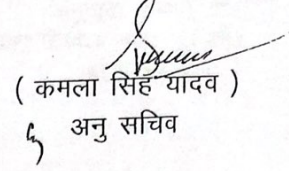 ( कमला सिंह यादव )
अनु सचिव